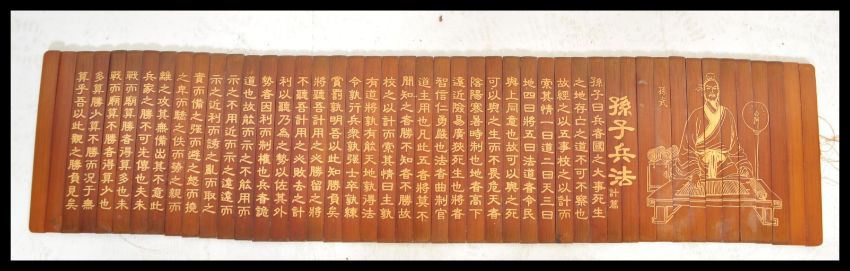 孫武
孫子兵法
計篇
孫子曰兵者國之大事死生
之地存亡之道不可不察也
故經之以五事校之以計而
索其情一曰道二曰天三曰
地四曰將五曰法道者令民
與上同意也故可以與之死
可以與之生而不畏危天者
陰陽寒暑時制也地者高下
遠近險易廣狹死生也將者
智信仁勇嚴也法者曲制官
道主用也凡此五者將莫不
聞知之者勝不知者不勝故
校之以計而索其情曰主孰
有道將孰有能天地孰得法
令孰行兵衆孰強士卒孰練
賞罰孰明吾以此知勝負矣
將聽吾計用之必勝留之將
不聽吾計用之必敗去之計
利以聽乃為之勢以佐其外
勢者因利而制權也兵者詭
道也故能而示之不能用而
示之不用近而示之遠遠而
示之近利而誘之亂而取之
實而備之強而避之怒而撓
之卑而驕之佚而勞之親而
離之攻其無備出其不意此
兵家之勝不可先傳也夫未
戰而廟算勝者得算多也未
戰而廟算不勝者得算少也
多算勝少算不勝而況于無
算乎吾以此觀之勝負見矣